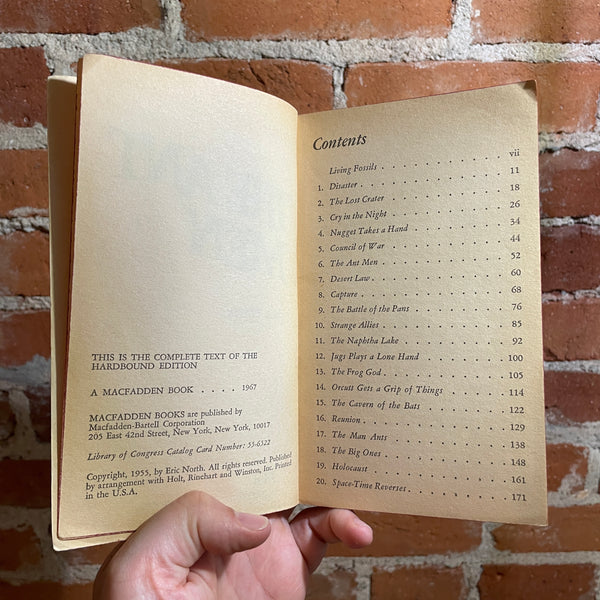 THIS IS THE COMPLETE TEXT OF THE
HARDBOUND EDITION
A MACFADDEN BOOK . . . . . 1967
MACFADDEN BOOKS are published by
Macfadden-Bartell Corporation
205 East 42nd Street, New York, New York, 10017
Library of Congress Catalog Card Number:
Copyright, 1955, by Eric North. All rights reserved. Published
by arrangement with Holt, Rinehart and Winston, Inc. Printed
in the U.S.A.
Contents
Living Fossils vii
1. Disaster 11
2. The Lost Crater 18
3. Cry in the Night 26
4. Nugget Takes a Hand 34
5. Council of War 44
6. The Ant Men 52
7. Desert Law 60
8. Capture 68
9. The Battle of the Pans 76
10. Strange Allies 85
11. The Naphtha Lake 92
12. Jugs Plays a Lone Hand 100
13. The Frog God 105
14. Orcutt Gets a Grip of Things 114
15. The Cavern of the Bats 122
16. Reunion 129
17. The Man Ants 138
18. The Big Ones 148
19. Holocaust 161
20. Space-Time Reverses 171